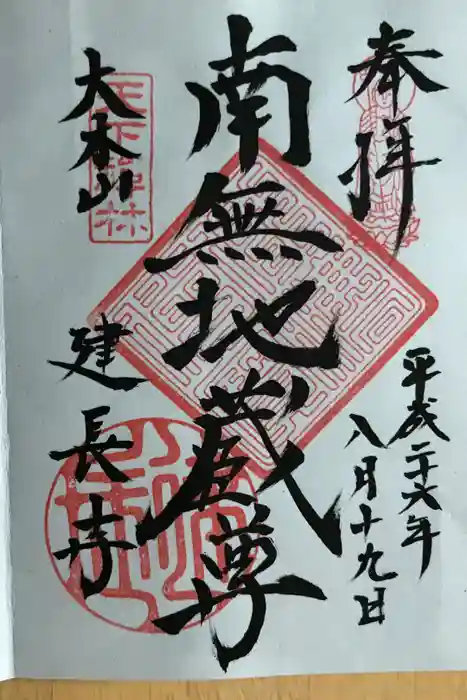 奉拝
平成二十六年
八月十九日
南無地蔵尊
大本山
建長寺
天下禅林